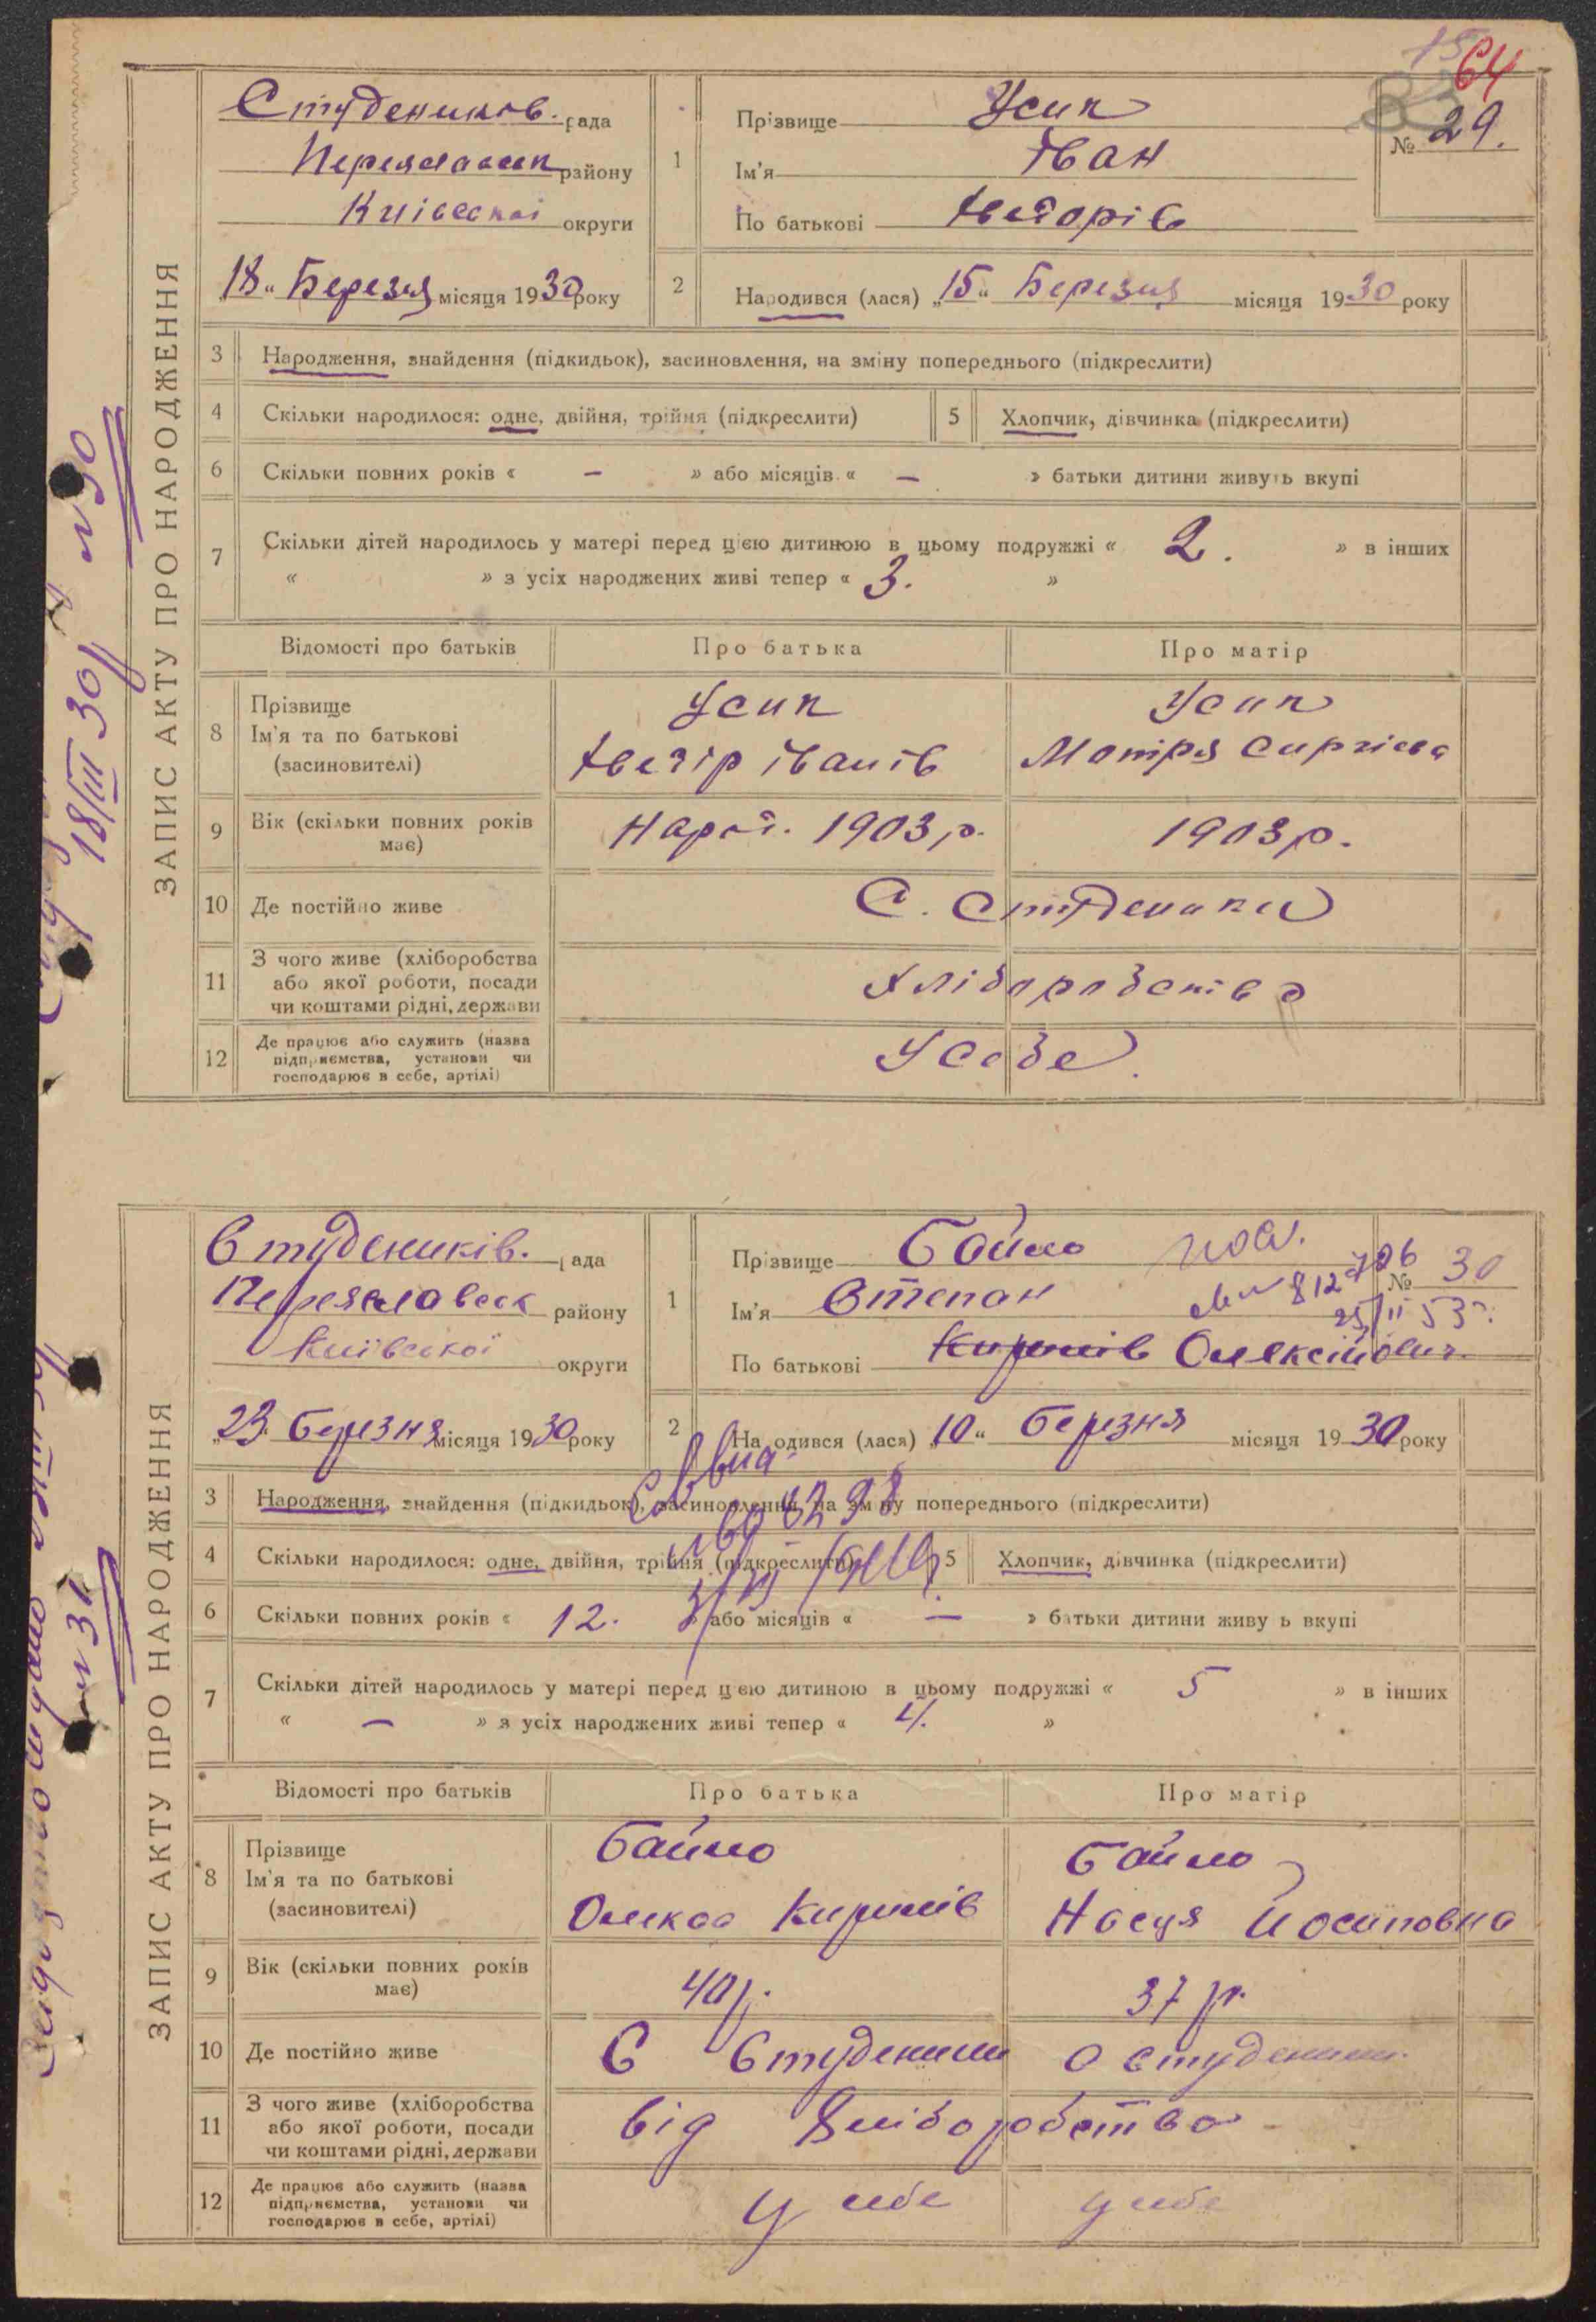 64
Студеников. рада
Переяславськ району
Київської округи
„18“ Березня місяця 1930 року
1
Прізвище Усик
Ім'я Іван
По батькові Квегорів
№ 29.
2 Народився (лася) „15“ Березня місяця 1930 року
ЗАПИС АКТУ ПРО НАРОДЖЕННЯ
3 Народження, знайдення (підкидьок), засиновлення, на зміну попереднього (підкреслити)
4 Скільки народилося: одне, двійня, трійня (підкреслити) 5 Хлопчик, дівчинка (підкреслити)
6 Скільки повних років « – » або місяців « – » батьки дитини живуть вкупі
7 Скільки дітей народилось у матері перед цією дитиною в цьому подружжі « 2. » в інших
« » з усіх народжених живі тепер « 3. »
Відомості про батьків Про батька Про матір
8 Прізвище Усик Усик
Ім'я та по батькові Іванів Мотря Сиргієва
(засиновителі)
9 Вік (скільки повних років має) Народ. 1903 р. 1903 р.
10 Де постійно живе С. Студеники
11 З чого живе (хліборобства
або якої роботи, посади
чи коштами рідні, держави
Хліборобство
12 Де працює або служить (назва
підприємства, установи чи
господарює в себе, артілі)
У себе.
18/III 30
N 30
Студеників. рада
Переяславськ району
Київської округи
„23“ березня місяця 1930 року
1
Прізвище Бойко
Ім'я Степан
По батькові Кирилів Олексійович
№ 30
25/II 53 г.
2 Народився (лася) „10“ березня місяця 1930 року
ЗАПИС АКТУ ПРО НАРОДЖЕННЯ
3 Народження, знайдення (підкидьок), засиновлення, на зміну попереднього (підкреслити)
4 Скільки народилося: одне, двійня, трійня (підкреслити) 5 Хлопчик, дівчинка (підкреслити)
6 Скільки повних років « 12. » або місяців « – » батьки дитини живуть вкупі
7 Скільки дітей народилось у матері перед цією дитиною в цьому подружжі « 5 » в інших
« – » з усіх народжених живі тепер « 4. »
Відомості про батьків Про батька Про матір
8 Прізвище
Ім'я та по батькові Олекса Кирилів Настя Йосиповна
(засиновителі)
9 Вік (скільки повних років має) 40 р. 37 р.
10 Де постійно живе С Студеники С Студеники
11 З чого живе (хліборобства
або якої роботи, посади
чи коштами рідні, держави
від хліборобства
12 Де працює або служить (назва
підприємства, установи чи
господарює в себе, артілі)
у себе у себе
N 31